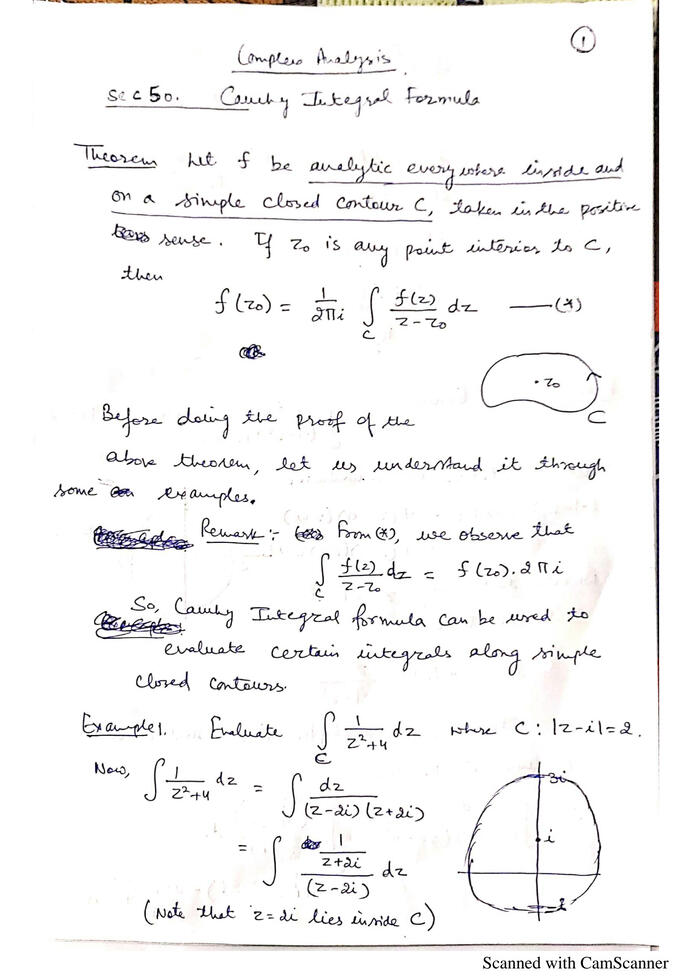 1
Complex Analysis
Sec 50. Cauchy Integral Formula
Theorem Let f be analytic everywhere inside and
on a simple closed contour C, taken in the positive
sense. If z₀ is any point interior to C,
then
f(z₀) = 1/2πi ∫_C f(z)/(z-z₀) dz —— (*)
· z₀
C
Before doing the proof of the
above theorem, let us understand it through
some examples.
Remark :- From (*), we observe that
∫_C f(z)/(z-z₀) dz = f(z₀). 2πi
So, Cauchy Integral formula can be used to
evaluate certain integrals along simple
closed contours.
Example 1. Evaluate ∫_C 1/(z²+4) dz where C : |z-i|=2.
Now, ∫ 1/(z²+4) dz = ∫ dz/((z-2i)(z+2i))
= ∫ (1/(z+2i))/(z-2i) dz
3i
i
(Note that z=2i lies inside C)
Scanned with CamScanner